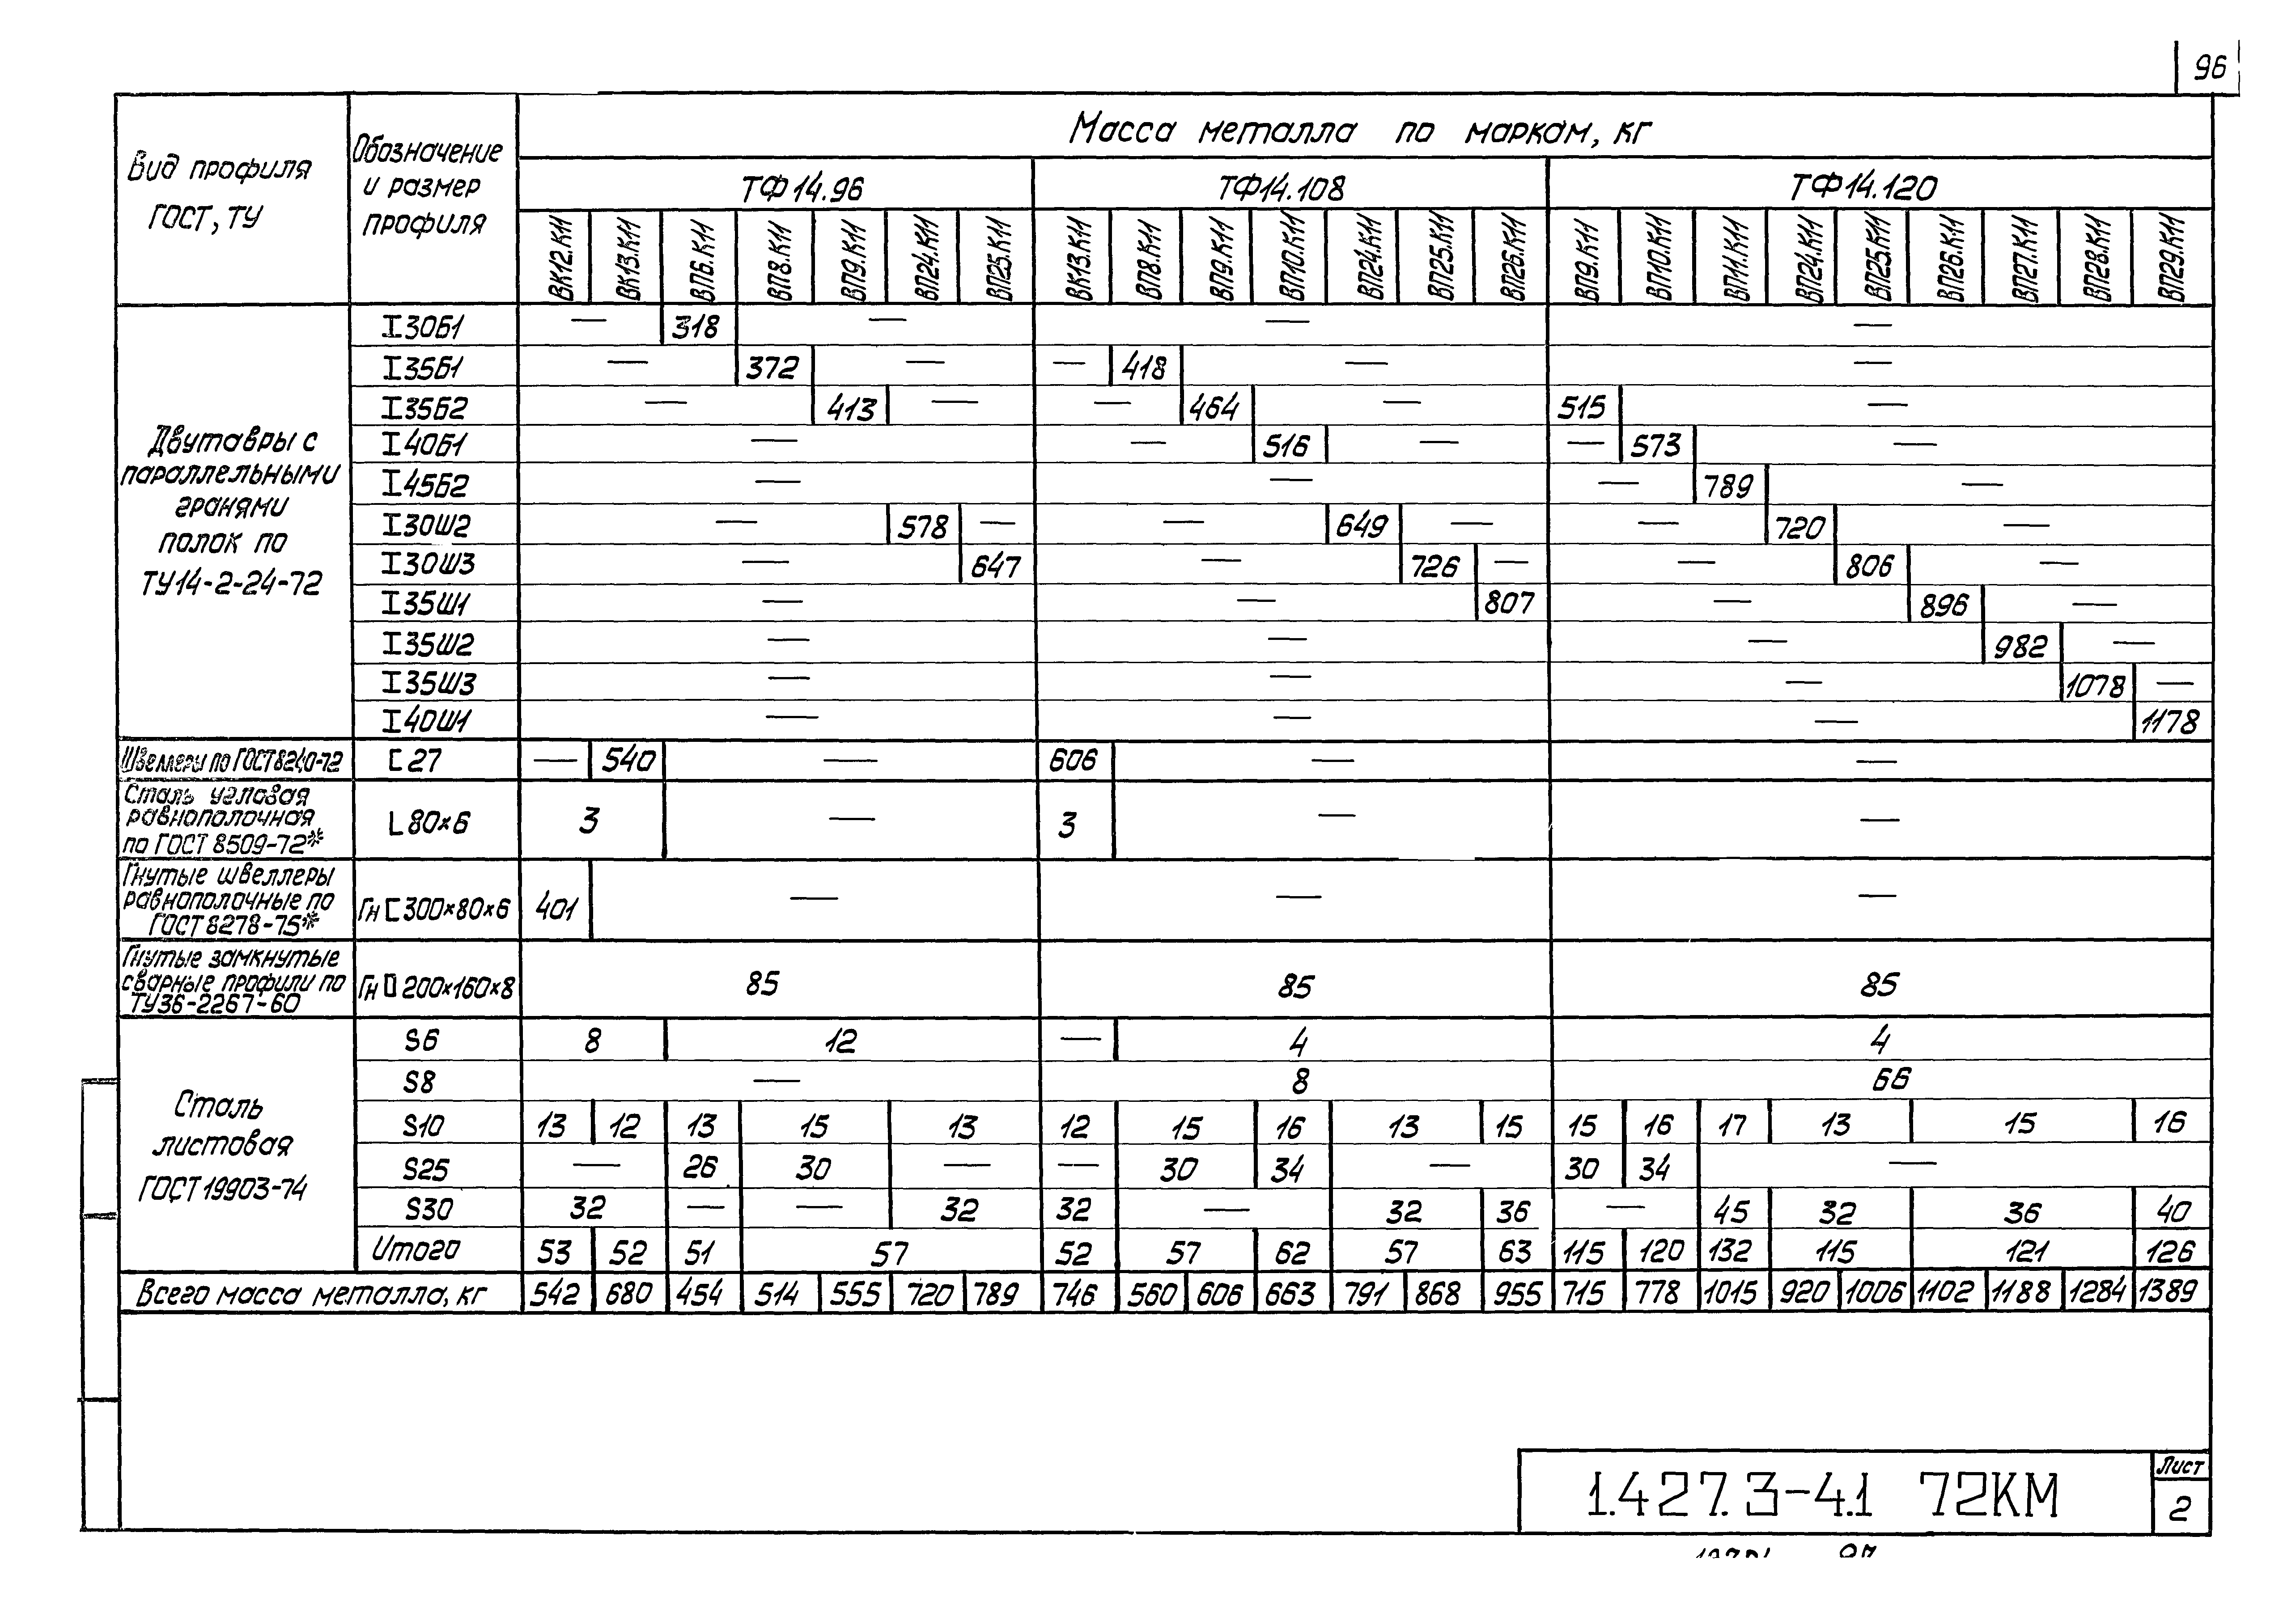 96
Вид профиля ГОСТ, ТУ
Обозначение и размер профиля
Масса металла по маркам, кг
ТФ14.96 ТФ14.108 ТФ14.120
ВК12.К11 ВК13.К11 ВП6.К11 ВП8.К11 ВП9.К11 ВП24.К11 ВП25.К11 ВК13.К11 ВП8.К11 ВП9.К11 ВП10.К11 ВП24.К11 ВП25.К11 ВП26.К11 ВП9.К11 ВП10.К11 ВП11.К11 ВП24.К11 ВП25.К11 ВП26.К11 ВП27.К11 ВП28.К11 ВП29.К11
Двутавры с параллельными гранями полок по ТУ14-2-24-72
I30Б1 — 318 — — —
I35Б1 — 372 — — 418 — —
I35Б2 — 413 — — 464 — 515 —
I40Б1 — — 516 — — 573 —
I45Б2 — — — 789 —
I30Ш2 — 578 — — 649 — — 720 —
I30Ш3 — 647 — 726 — — 806 —
I35Ш1 — — 807 — 896 —
I35Ш2 — — — 982 —
I35Ш3 — — — 1078 —
I40Ш1 — — — 1178
Швеллеры по ГОСТ 8240-72 [27 — 540 — 606 — —
Сталь угловая равнополочная по ГОСТ 8509-72* L80×6 3 — 3 — —
Гнутые швеллеры равнополочные по ГОСТ 8278-75* Гн [300×80×6 401 — — —
Гнутые замкнутые сварные профили по ТУ36-2267-60 Гн □ 200×160×8 85 85 85
Сталь листовая ГОСТ 19903-74
S6 8 12 — 4 4
S8 — 8 66
S10 13 12 13 15 13 12 15 16 13 15 15 16 17 13 15 16
S25 — 26 30 — — 30 34 — 30 34 —
S30 32 — — 32 32 — 32 36 — 45 32 36 40
Итого 53 52 51 57 52 57 62 57 63 115 120 132 115 121 126
Всего масса металла, кг 542 680 454 514 555 720 789 746 560 606 663 791 868 955 715 778 1015 920 1006 1102 1188 1284 1389
1.427.3-4.1 72КМ
Лист
2